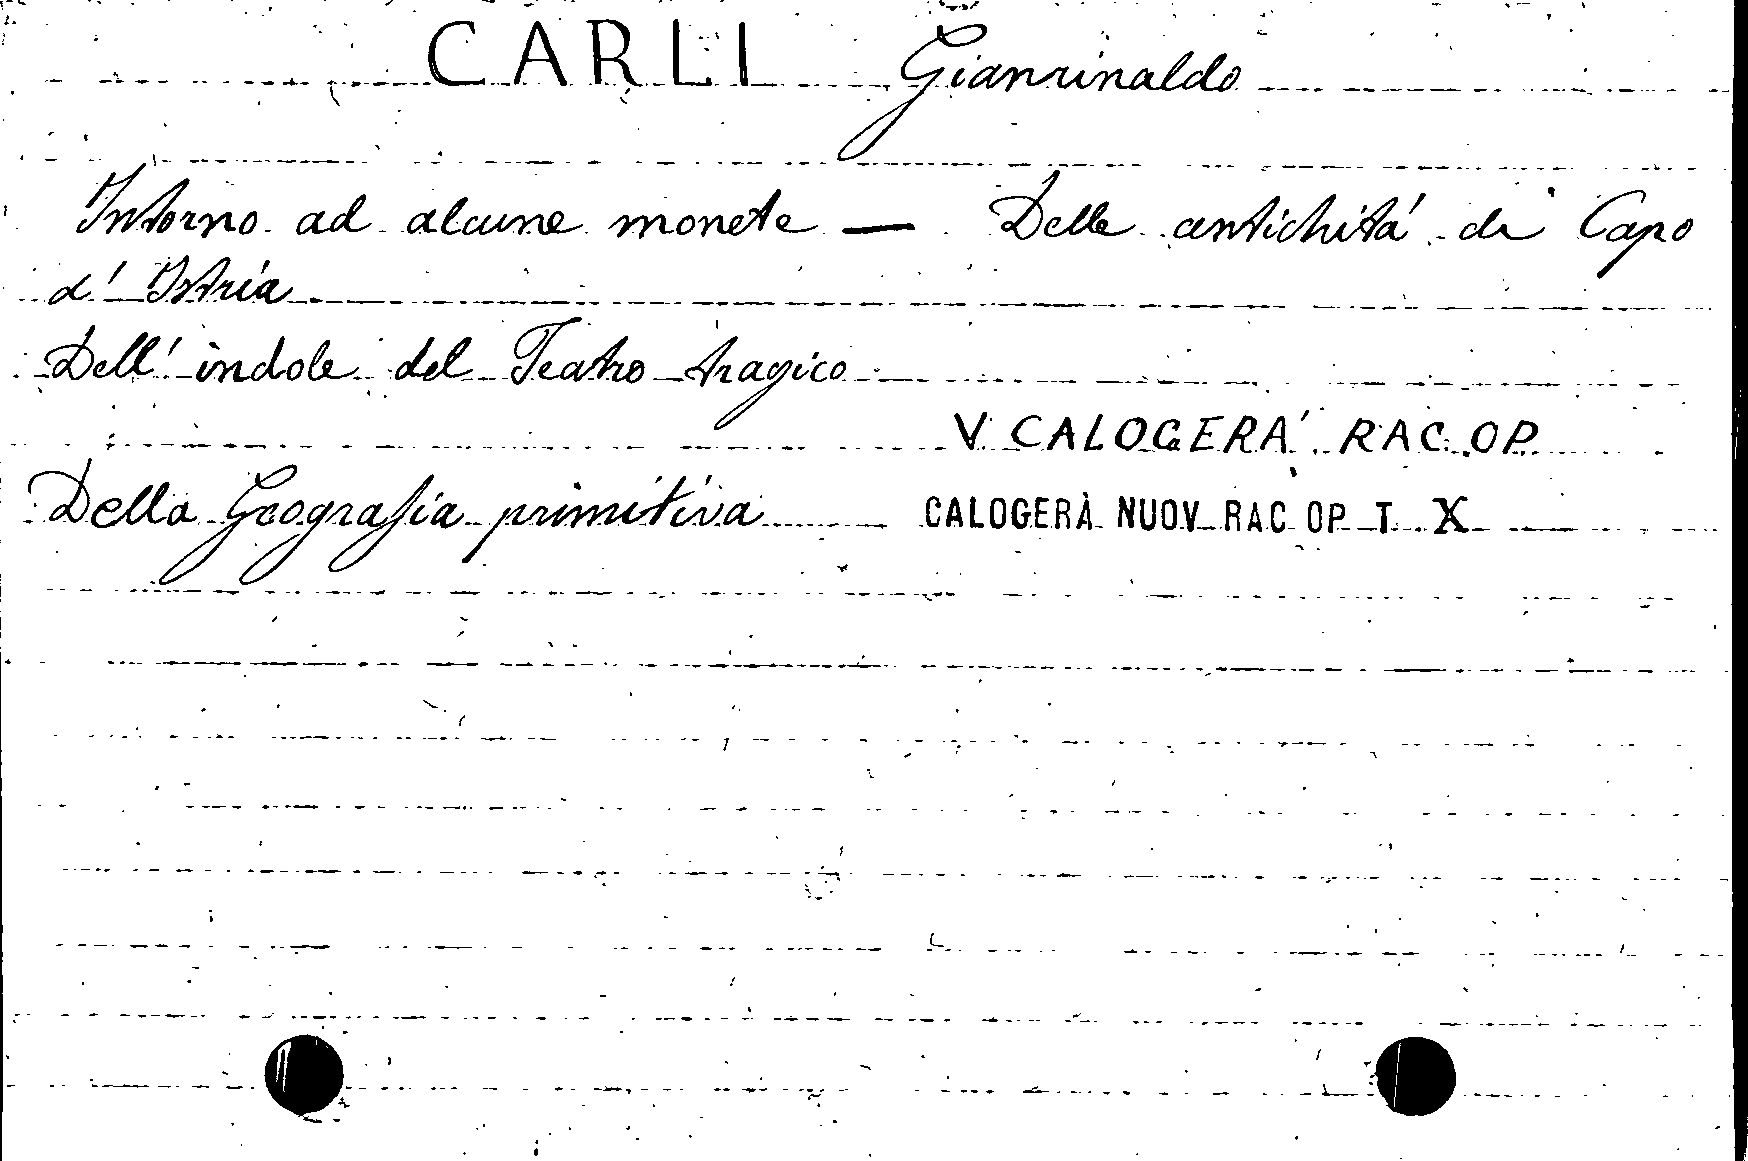 CARLI Gianrinaldo
Intorno ad alcune monete — Delle antichità di Capo
d' Istria
Dell' indole del Teatro tragico
V. CALOGERA' RAC. OP.
Della Geografia primitiva CALOGERÀ NUOV RAC OP T. X